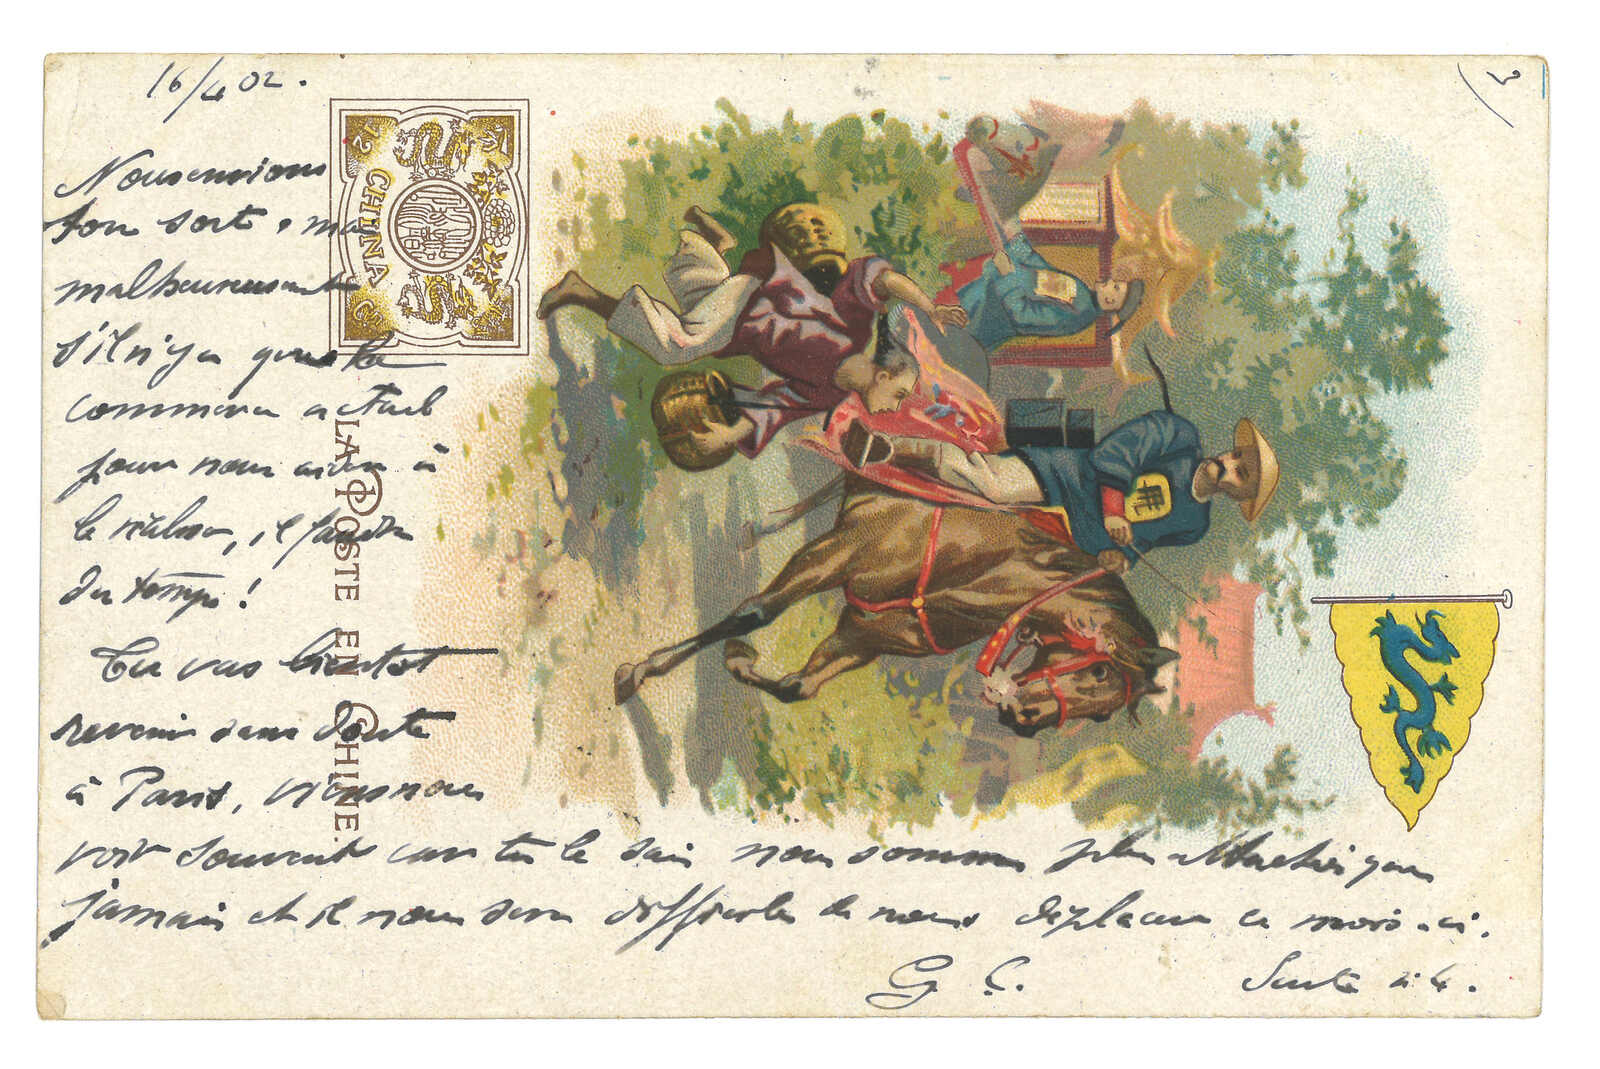 16/4 02.
3
Nous envions
ton sort, ma
malheureusement
s'il n'y a que le
commerce actuel
pour nous aider à
le réaliser, il faudra
du temps!
Tu vas bientôt
revenir sans doute
à Paris, viens nous
voir souvent car tu le sais nous sommes plus attachés que
jamais et il nous sera difficile de nous déplacer ce mois-ci.
G. C. Suite à 4.
CHINA
12
LA POSTE EN CHINE.